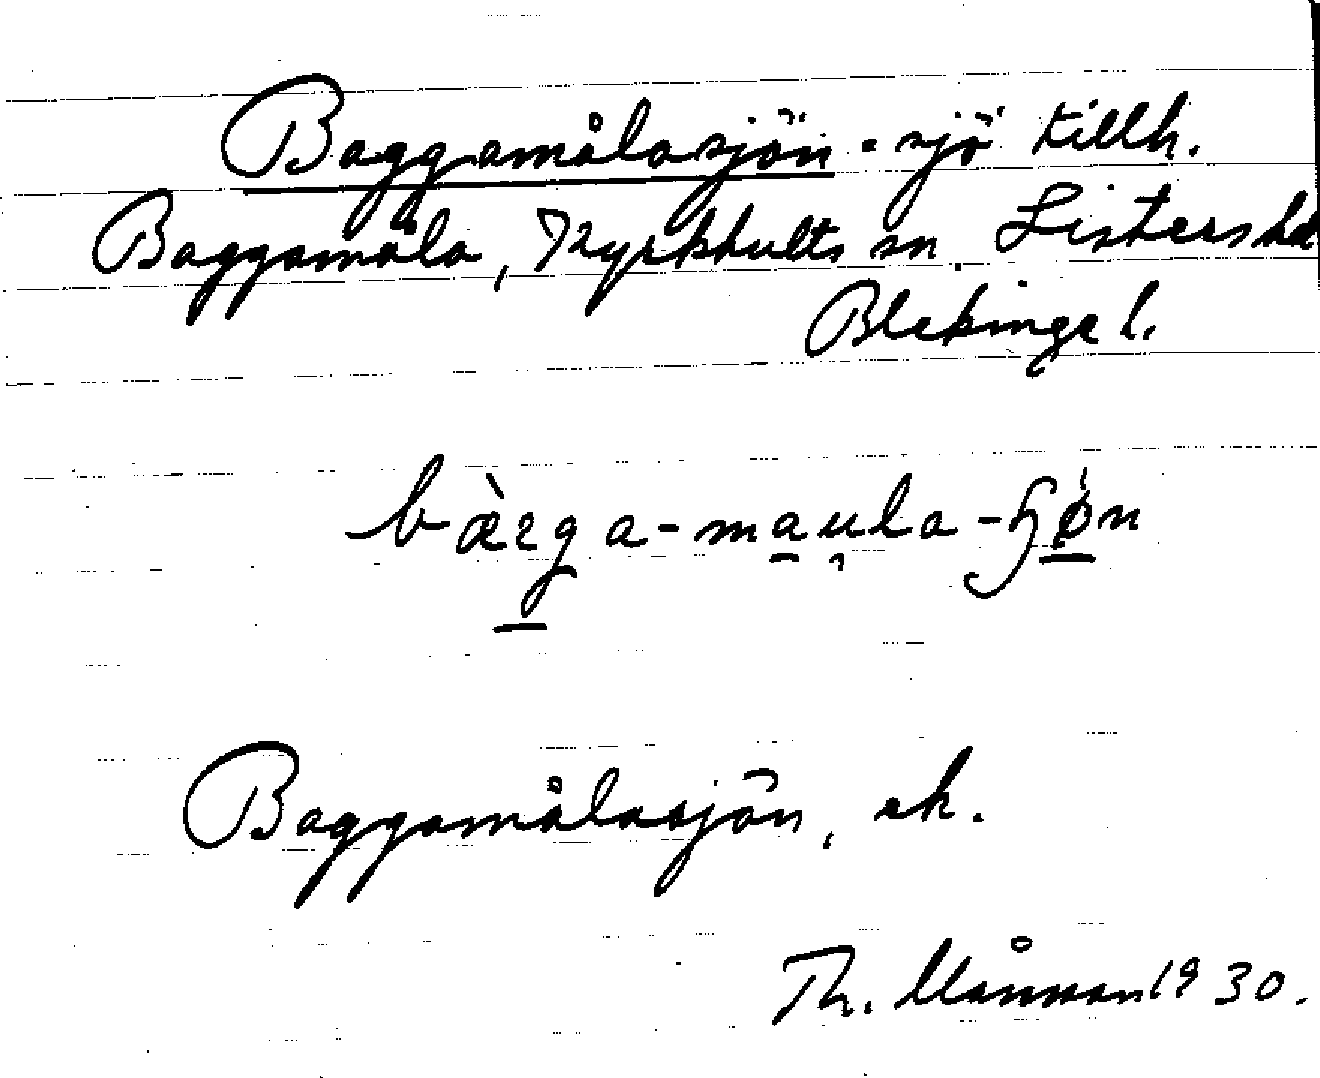 Baggamålasjön - sjö tillh.
Baggamåla, Kyrkhults sn, Listers hd
Blekinge l.
bàrga-maula-ɧøn
Baggamålasjön, ek.
Th. 1930.